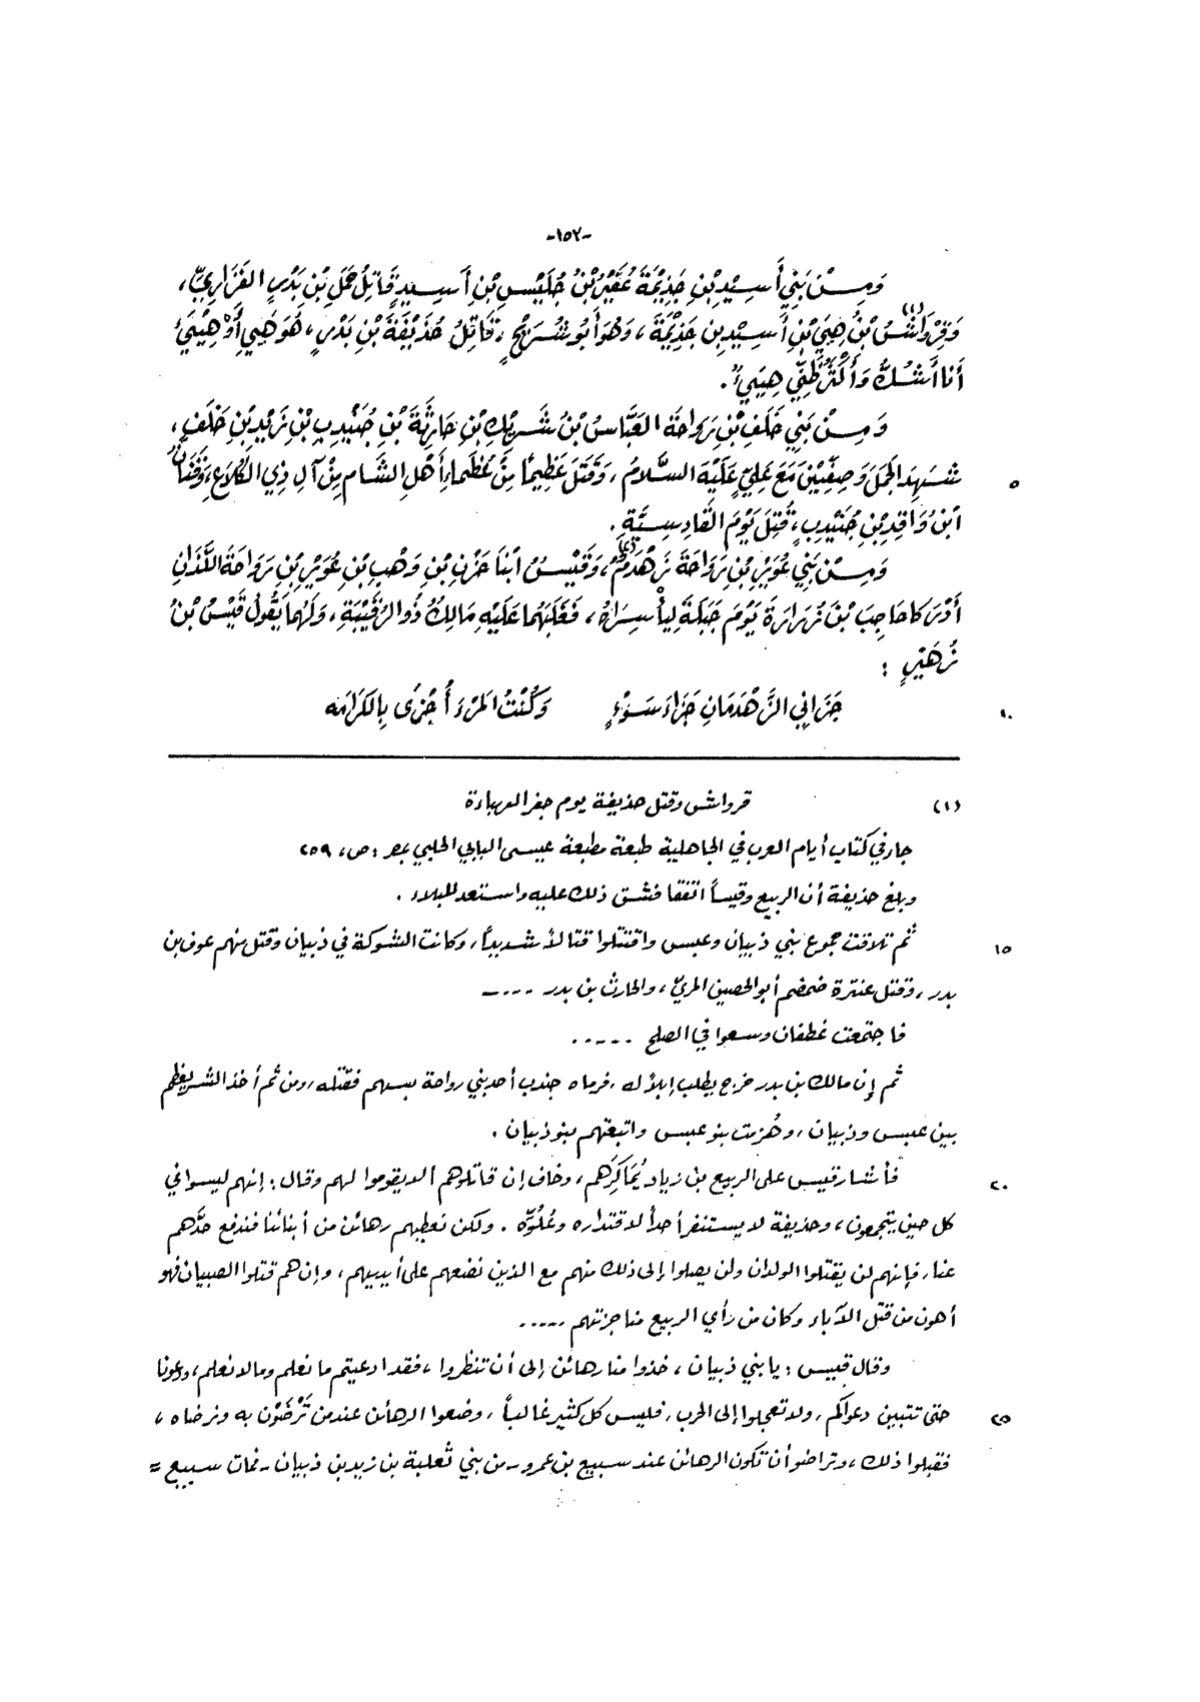 -١٥٢-
وَمِنْ بَنِي أَسِيْدِ بْنِ جَذِيْمَةَ عُقَيْرُ بْنُ حُلَيْسِ بْنِ أَسِيدٍ قَاتِلُ حَمَلِ بْنِ بَدْرٍ الفَزَارِيِّ،
وَقِرْوَاشُ (١) بْنُ هِنِيِّ بْنِ أَسِيْدِ بنِ جَذِيْمَةَ، وَهُوَ أَبُو شُرَيْحٍ، قَاتِلُ حُذَيْفَةَ بْنِ بَدْرٍ، هُوَ هَنِي أَوْ هِنَيٌّ
أَنا أَشُكُّ وَأَكْثَرُ ظَنِّي هِنَيٌّ.
وَمِنْ بَنِي خَلَفِ بْنِ رَوَاحَةَ العَبَّاسُ بْنُ شَرِيْكِ بْنِ حَارِثَةَ بْنِ جُنَيْدِبِ بْنِ زَيْدِ بْنِ خَلَفٍ،
شَهِدَ الجَمَلَ وَصِفِّيْنَ مَعَ عَلِيٍّ عَلَيْهِ السَّلَامُ، وَقَتَلَ عَظِيماً مِنْ عُظَمَاءِ أَهْلِ الشَّامِ مِنْ آلِ ذِي الكَلَاعِ، وَقَنَانُ ٥
ابْنُ وَاقِدِ بْنِ جُنَيْدِبٍ، قُتِلَ يَوْمَ القَادِسِيَّةِ.
وَمِنْ بَنِي عُوَيْرِ بْنِ رَوَاحَةَ زَهْدَمٌ، وَقَيْسٌ ابْنَا حَزْنِ بْنِ وَهْبِ بْنِ عُوَيْرِ بْنِ رَوَاحَةَ اللَّذَانِ
أَدْرَكَا حَاجِبَ بْنَ زُرَارَةَ يَوْمَ جَبَلَةَ لِيَأْسِرَاهُ، فَغَلَبَهُمَا عَلَيْهِ مَالِكٌ ذُو الرُّقَيْبَةِ، وَلَهُمَا يَقُولُ قَيْسُ بْنُ
زُهَيْرٍ :
جَزَانِي الزَّهْدَمَانِ جَزَاءَ سَوْءٍ وَكُنْتُ المَرْءَ أُجْزَى بِالكَرَامَه ١٠
(١) قرواش وقتل حذيفة يوم جفر الهباءة
جاء في كتاب أيام العرب في الجاهلية طبعة مطبعة عيسى البابي الحلبي بمصر : ص، ٢٥٩
وبلغ حذيفة أن الربيع وقيساً اتفقا فشق ذلك عليه واستعد للبلاء.
ثم تلاقت جموع بني ذبيان وعبس واقتتلوا قتالاً شديداً، وكانت الشوكة في ذبيان وقتل منهم عوف بن ١٥
بدر، وقتل عنترة ضمضم أبو الحصين المريّ، والحارث بن بدر ----
فاجتمعت غطفان وسعوا في الصلح -----
ثم إن مالك بن بدر خرج يطلب إبلاً له، فرماه جندب أحد بني رواحة بسهم فقتله، ومن ثم أخذ الشر يعظم
بين عبس وذبيان، وهُزمت بنو عبس واتبعتهم بنو ذبيان.
فأشار قيس على الربيع بن زياد يُمَاكِرَهم، وخاف إن قاتلوهم ألا يقوموا لهم وقال: إنهم ليسوا في ٢٠
كل حين يتجمعون، وحذيفة لا يستنفر أحداً لاقتداره وعُلُوِّه. ولكن نعطيهم رهائن من أبنائنا فندفع حدَّهم
عنا، فإنهم لن يقتلوا الولدان ولن يصلوا إلى ذلك منهم مع الذين نضعهم على أيديهم، وإن هم قتلوا الصبيان فهو
أهون من قتل الآباء وكان من رأي الربيع مناجزتهم -----
وقال قيس : يا بني ذبيان، خذوا منا رهائن إلى أن تنظروا، فقد ادعيتم ما نعلم وما لا نعلم، ودعونا
حتى تتبين دعواكم، ولا تعجلوا إلى الحرب، فليس كل كثير غالباً، وضعوا الرهائن عند من تَرْضَوْن به ونرضاه، ٢٥
فقبلوا ذلك، وتراضوا أن تكون الرهائن عند سبيع بن عمرو - من بني ثعلبة بن زيد بن ذبيان - فمات سبيع =